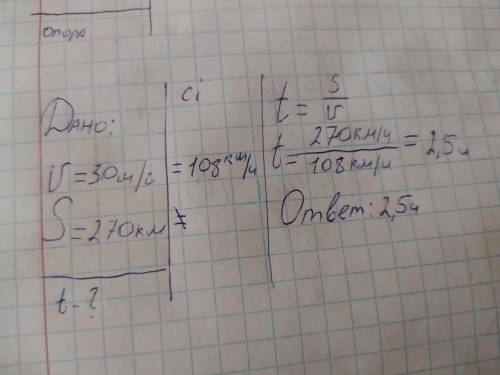 опора
Дано:
v=30м/с
S=270км
t-?
ci
=108км/ч
t=S/v
t=270км/ч/108км/ч=2,5ч
Ответ: 2,5ч